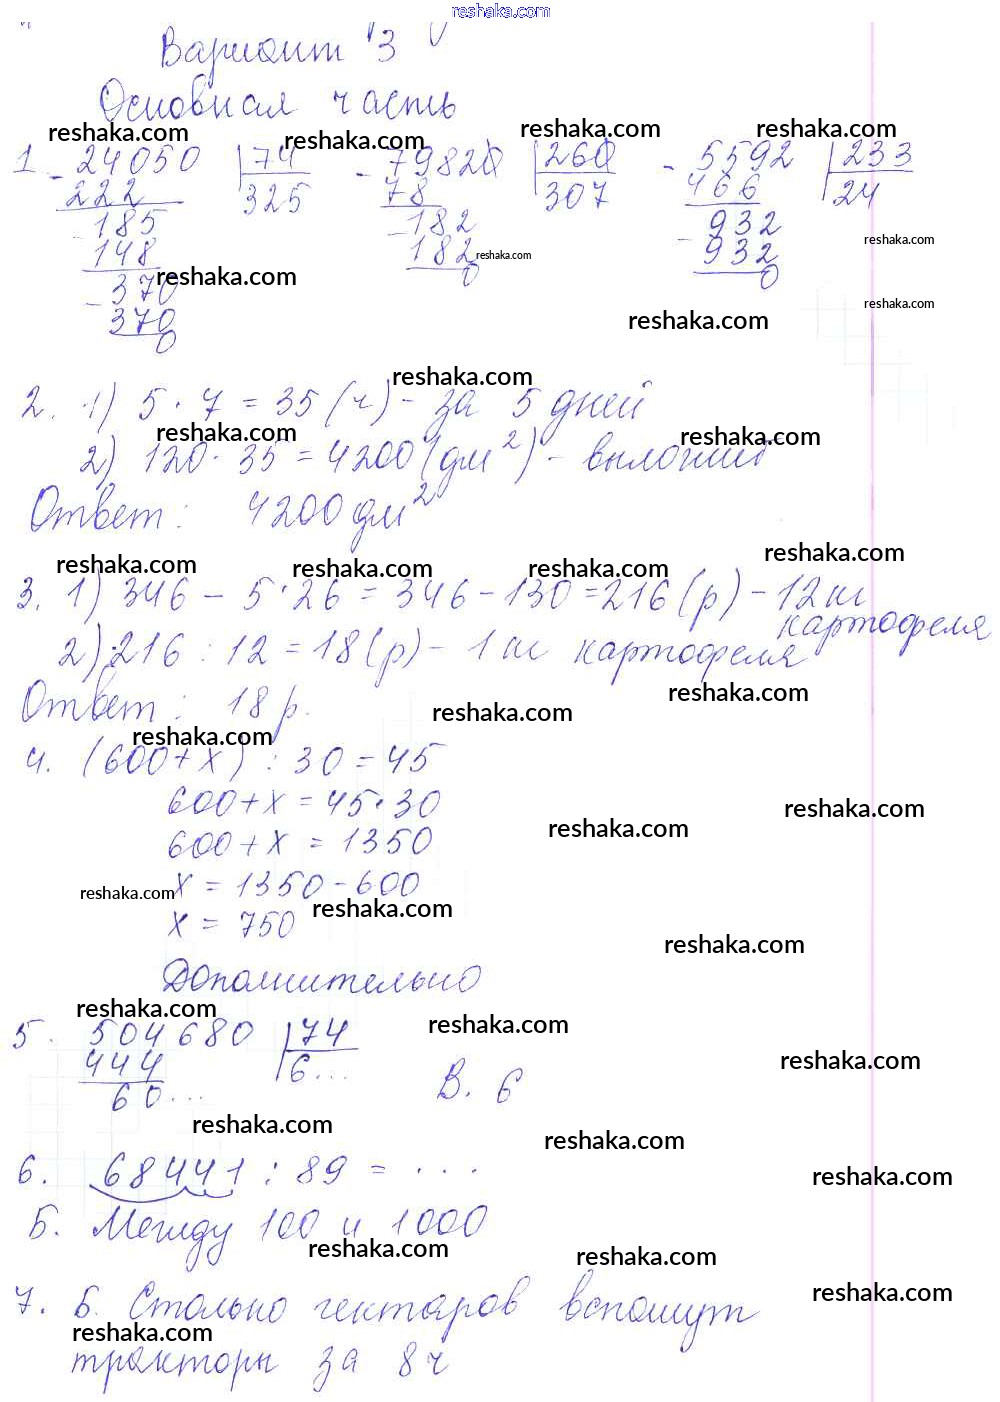 reshaka.com
Вариант 3
Основная часть
reshaka.com reshaka.com reshaka.com reshaka.com
1. - 24050 | 74 - 79820 | 260 - 5592 | 233
222 325 78 307 466 24
- 185 - 182 - 932
148 182 932
reshaka.com reshaka.com reshaka.com
- 370 0 0
370
0
reshaka.com reshaka.com
reshaka.com
2. 1) 5 · 7 = 35 (ч) - за 5 дней
reshaka.com reshaka.com
2) 120 · 35 = 4200 (дм²) - выложит
Ответ: 4200 дм²
reshaka.com reshaka.com reshaka.com reshaka.com
3. 1) 346 - 5 · 26 = 346 - 130 = 216 (р) - 12 кг
картофеля
2) 216 : 12 = 18 (р) - 1 кг картофеля
Ответ: 18 р.
reshaka.com reshaka.com reshaka.com
4. (600 + х) : 30 = 45
600 + х = 45 · 30
reshaka.com reshaka.com
600 + х = 1350
х = 1350 - 600
reshaka.com reshaka.com
х = 750
reshaka.com
Дополнительно
reshaka.com reshaka.com reshaka.com
5. 504680 | 74
444 6...
60... В. 6
reshaka.com reshaka.com
6. 68441 : 89 = ...
reshaka.com
Б. Между 100 и 1000
reshaka.com reshaka.com reshaka.com
7. Б. Столько гектаров вспашут
reshaka.com
тракторы за 8 ч